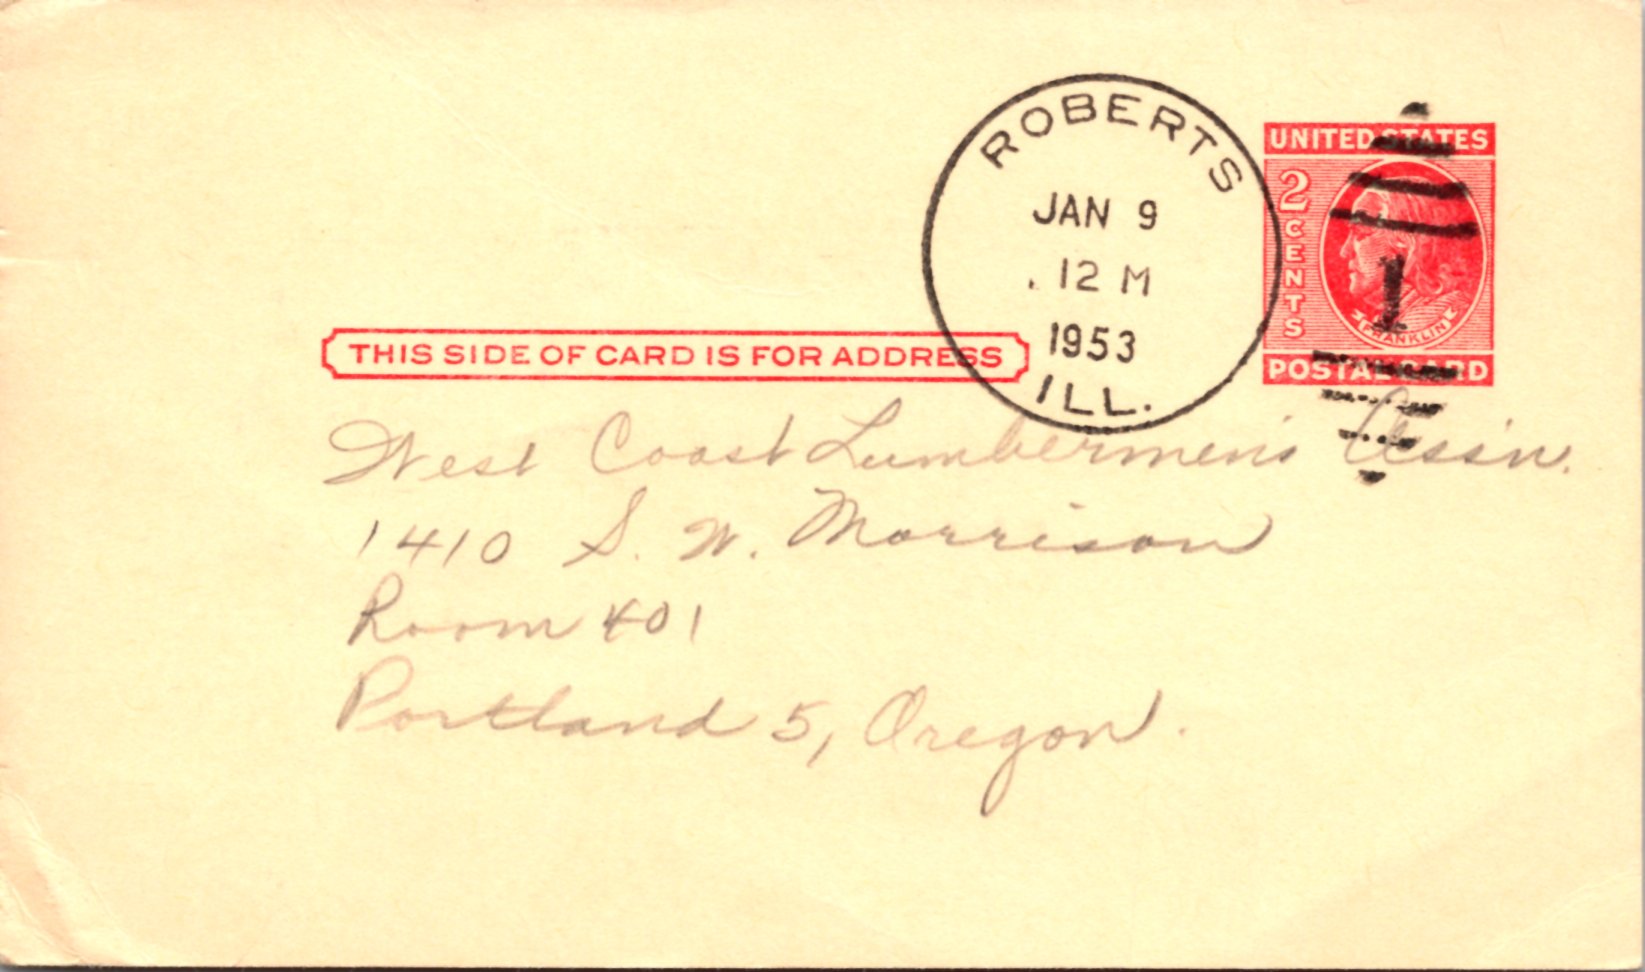 ROBERTS
JAN 9
12 M
1953
ILL.
UNITED STATES
2 CENTS
1
FRANKLIN
POSTAL CARD
THIS SIDE OF CARD IS FOR ADDRESS
West Coast Lumbermen's Ass'n.
1410 S. W. Morrison
Room 401
Portland 5, Oregon.